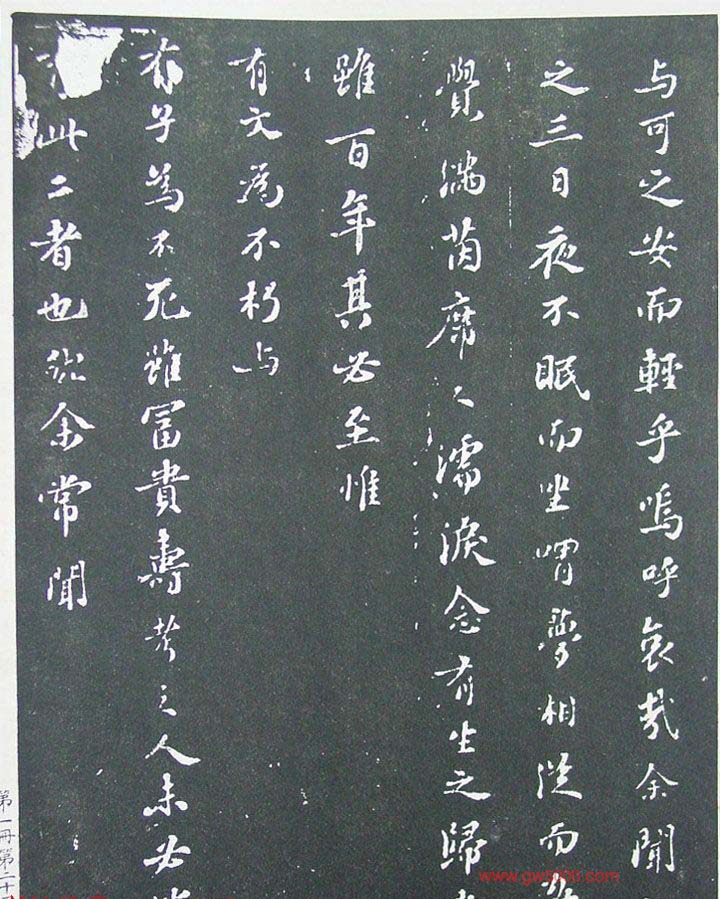 与可之安而輕乎嗚呼哀哉余聞
之三日夜不眠而坐喟夢相從而
覺滿茵席之濡淚念有生之歸
雖百年其必至惟
有文為不朽与
有子為不死雖富貴壽考之人未必
此二者也然余常聞
第一冊第二十